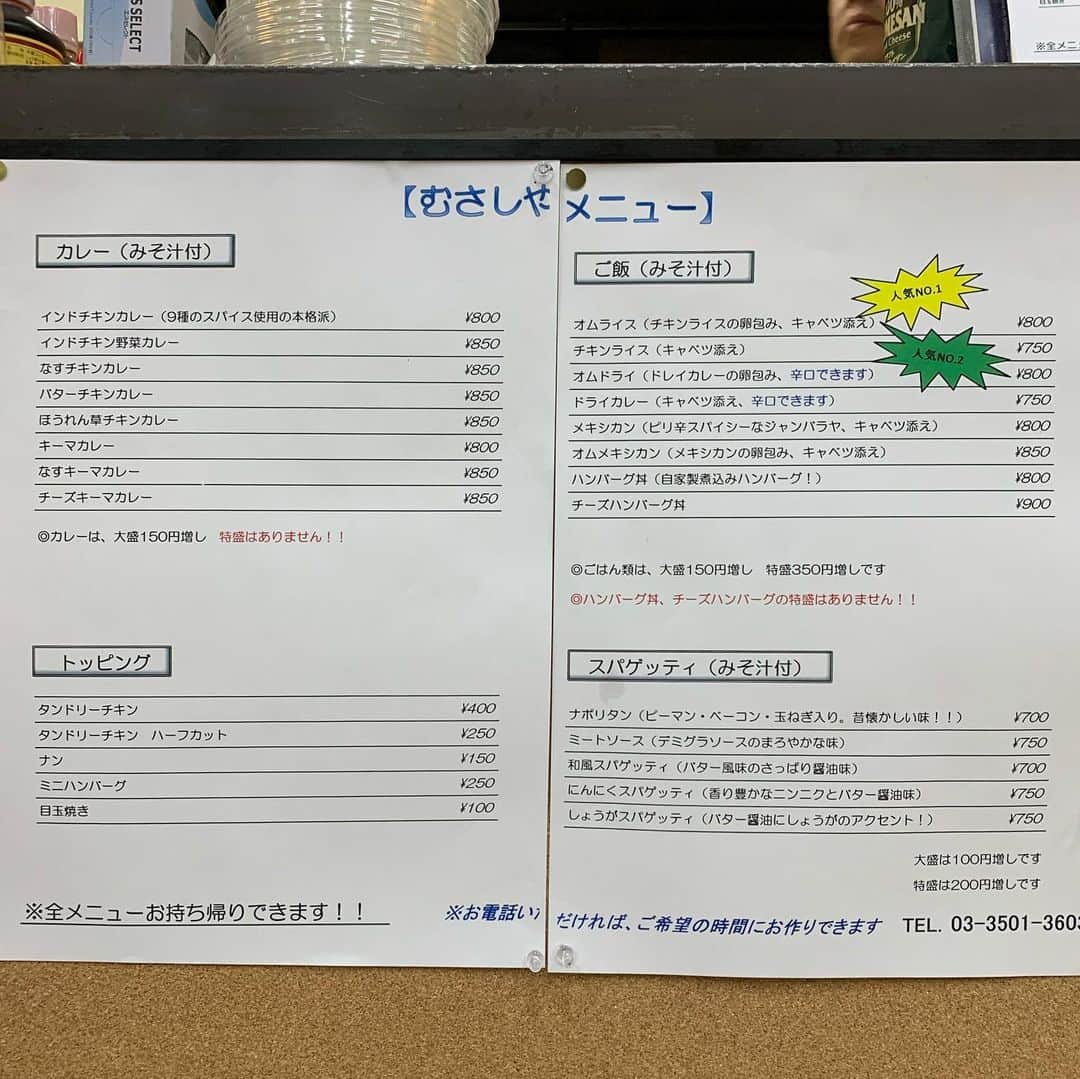 S SELECT
MESAN
Cheese
※全メニュ
【むさしやメニュー】
カレー（みそ汁付）
インドチキンカレー（9種のスパイス使用の本格派） ¥800
インドチキン野菜カレー ¥850
なすチキンカレー ¥850
バターチキンカレー ¥850
ほうれん草チキンカレー ¥850
キーマカレー ¥800
なすキーマカレー ¥850
チーズキーマカレー ¥850
◎カレーは、大盛150円増し 特盛はありません！！
トッピング
タンドリーチキン ¥400
タンドリーチキン ハーフカット ¥250
ナン ¥150
ミニハンバーグ ¥250
目玉焼き ¥100
※全メニューお持ち帰りできます！！
ご飯（みそ汁付）
人気NO.1
人気NO.2
オムライス（チキンライスの卵包み、キャベツ添え） ¥800
チキンライス（キャベツ添え） ¥750
オムドライ（ドレイカレーの卵包み、辛口できます） ¥800
ドライカレー（キャベツ添え、辛口できます） ¥750
メキシカン（ピリ辛スパイシーなジャンバラヤ、キャベツ添え） ¥800
オムメキシカン（メキシカンの卵包み、キャベツ添え） ¥850
ハンバーグ丼（自家製煮込みハンバーグ！） ¥800
チーズハンバーグ丼 ¥900
◎ごはん類は、大盛150円増し 特盛350円増しです
◎ハンバーグ丼、チーズハンバーグの特盛はありません！！
スパゲッティ（みそ汁付）
ナポリタン（ピーマン・ベーコン・玉ねぎ入り。昔懐かしい味！！） ¥700
ミートソース（デミグラソースのまろやかな味） ¥750
和風スパゲッティ（バター風味のさっぱり醤油味） ¥700
にんにくスパゲッティ（香り豊かなニンニクとバター醤油味） ¥750
しょうがスパゲッティ（バター醤油にしょうがのアクセント！） ¥750
大盛は100円増しです
特盛は200円増しです
※お電話いただければ、ご希望の時間にお作りできます TEL. 03-3501-3603